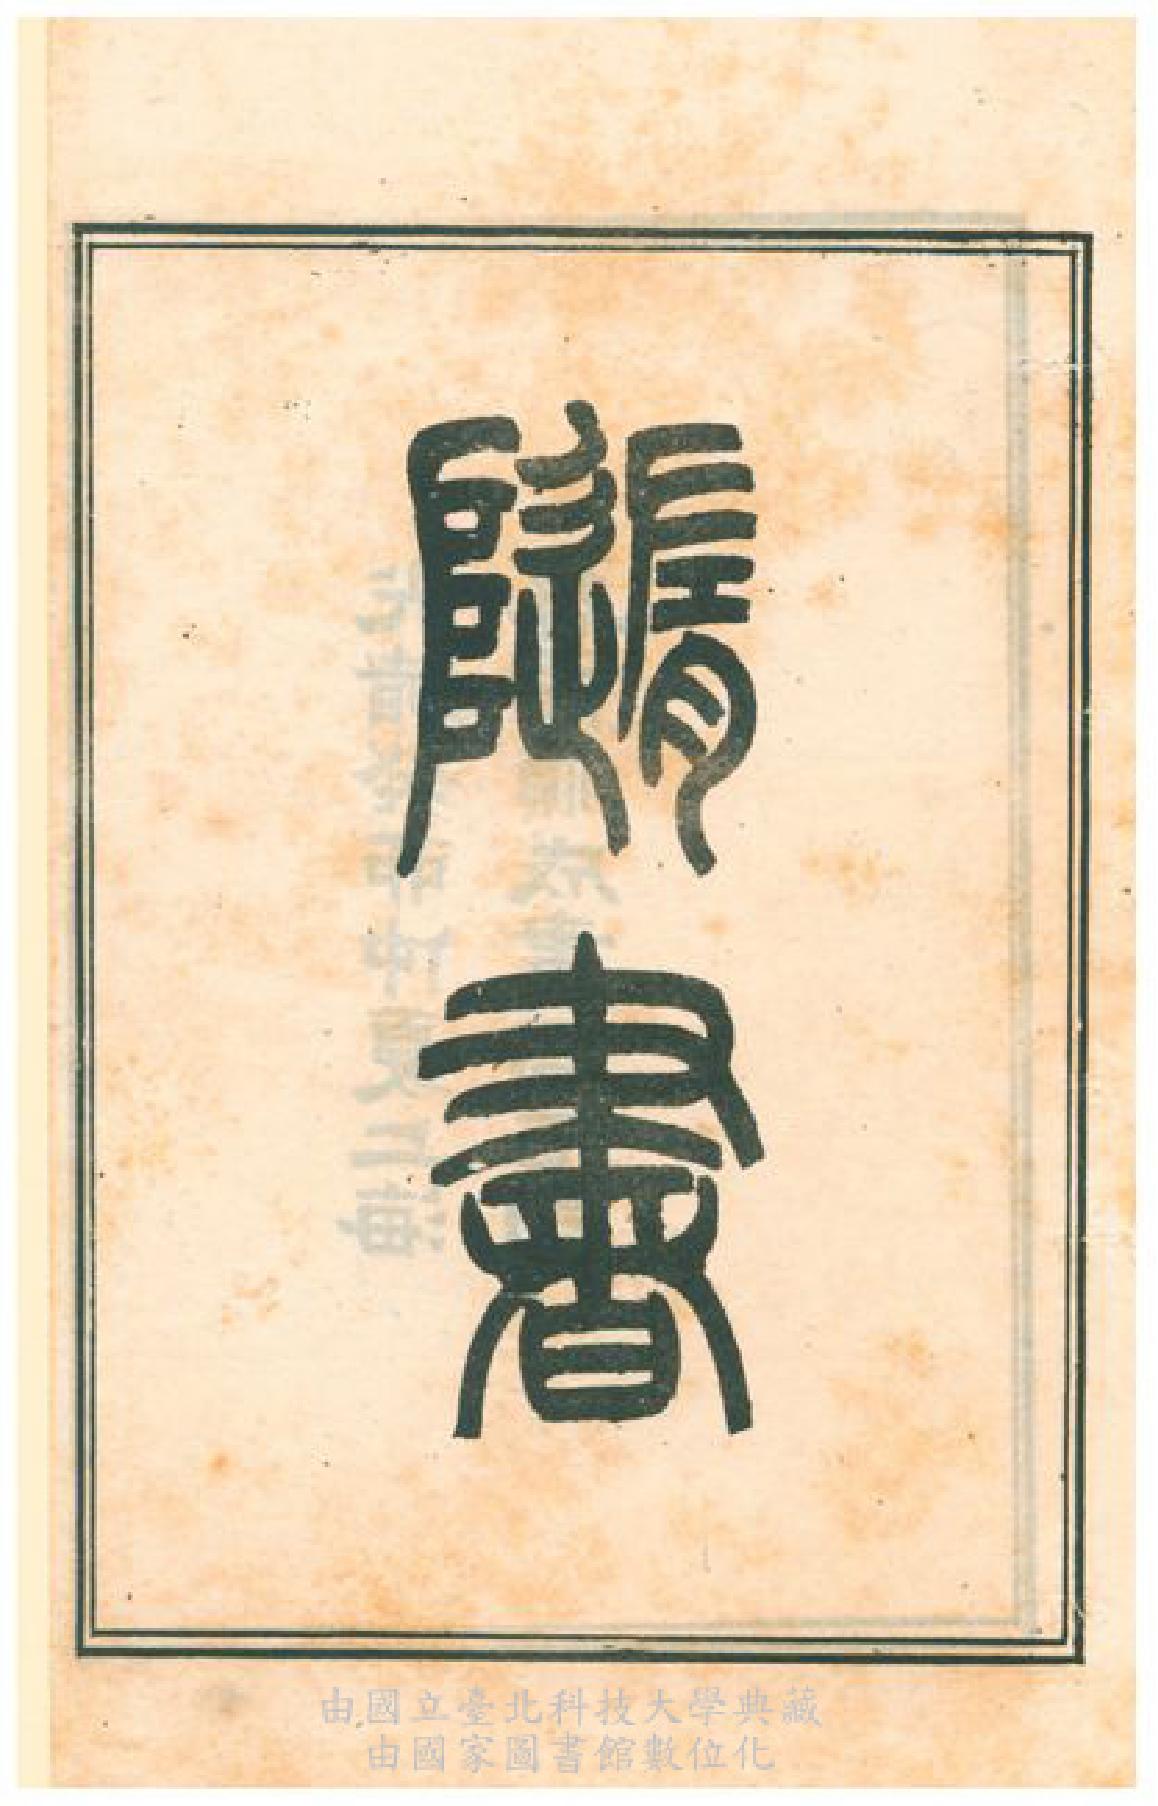 隨書
由國立臺北科技大學典藏
由國家圖書館數位化